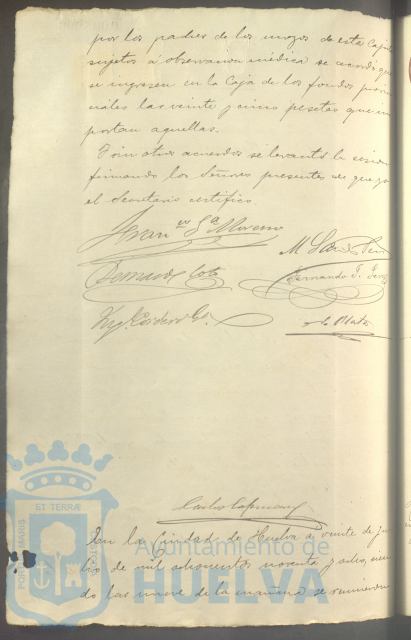 por los padres de los mozos de esta Capital
sujetos á observacion médica se acordó que
se ingresen en la Caja de los fondos provin
ciales las veinte y cinco pesetas que im
portan aquellas.
Y sin otros acuerdos se levantó la sesion
firmando los Señores presentes de que yo
el Secretario certifico.
Gª Moreno
M.
Fernando
Cordero
En la Ciudad de Huelva a veinte de ju
lio de mil ochocientos noventa y ocho, sien
do las nueve de la mañana se reunieron
ET TERRÆ
PORTUS MARIS
Ayuntamiento de
HUELVA